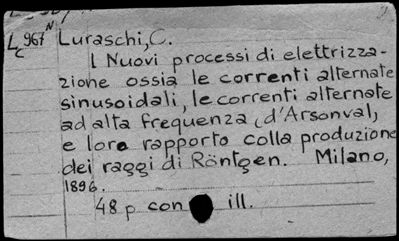 L 967 N Luraschi, C.
c
I Nuovi processi di elettrizza-
zione ossia le correnti alternate
sinusoidali, le correnti alternate
ad alta frequenza (d'Arsonval,
e loro rapporto colla produzione
dei raggi di Röntgen. Milano,
1896.
48 p con ill.